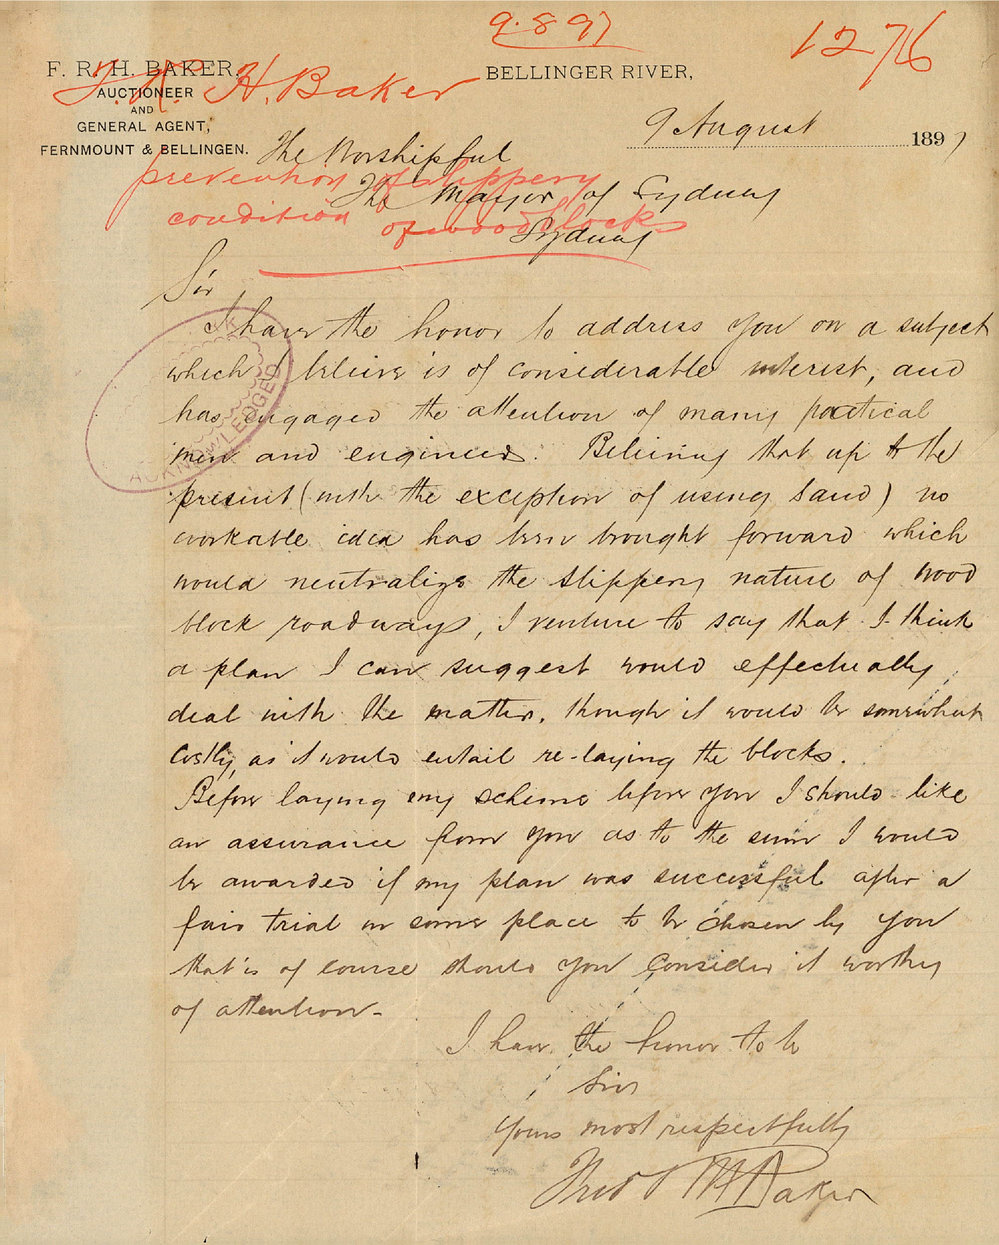 9.8.97
1276
F. R. H. BAKER,
F. R. H. Baker
AUCTIONEER
AND
GENERAL AGENT,
FERNMOUNT & BELLINGEN.
BELLINGER RIVER,
9 August 1897
The Worshipful
The Mayor of Sydney
Sydney
prevention of slippery
condition of wood blocks
Sir
I have the honor to address you on a subject
which I believe is of considerable interest, and
has engaged the attention of many practical
men and engineers. Believing that up to the
present (with the exception of using sand) no
workable idea has been brought forward which
would neutralize the slippery nature of wood
block roadways, I venture to say that I think
a plan I can suggest would effectually
deal with the matter, though it would be somewhat
costly, as it would entail re-laying the blocks.
Before laying my scheme before you I should like
an assurance from you as to the sum I would
be awarded if my plan was successful after a
fair trial in some place to be chosen by you
that is of course should you consider it worthy
of attention-
I have the honor to be
Sir
Yours most respectfully
Fred R H Baker
ACKNOWLEDGED